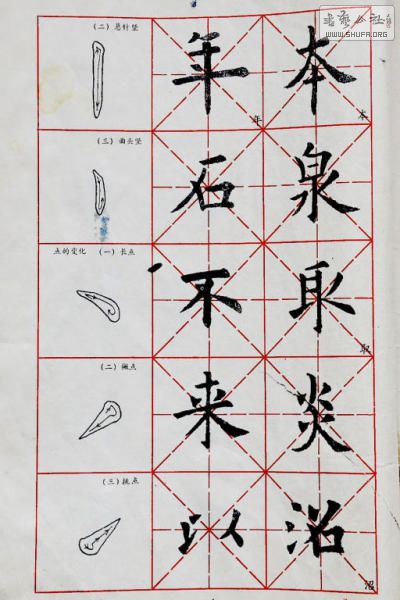 书艺公社
WWW.SHUFA.ORG
(二) 悬针竖
年 本
年 本
(三) 曲头竖
石 泉
点的变化 (一) 长点
不 取
取
(二) 撇点
来 炎
(三) 挑点
以 沼
沼